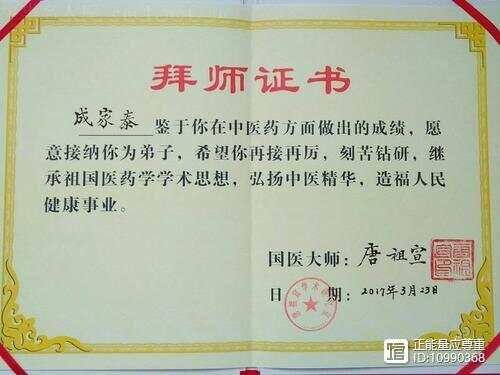 拜师证书
成家泰 鉴于你在中医药方面做出的成绩，愿
意接纳你为弟子，希望你再接再厉，刻苦钻研，继
承祖国医药学学术思想，弘扬中医精华，造福人民
健康事业。
国医大师：唐祖宣
日 期：2017年3月23日
正能量应尊重
ID:10990368